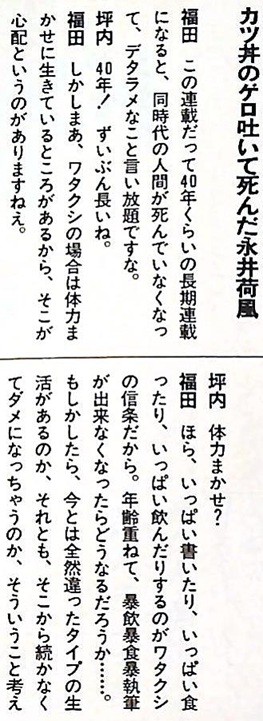 カツ丼のゲロ吐いて死んだ永井荷風
福田　この連載だって40年くらいの長期連載
になると、同時代の人間が死んでいなくなっ
て、デタラメなこと言い放題ですな。
坪内　40年！　ずいぶん長いね。
福田　しかしまあ、ワタクシの場合は体力ま
かせに生きているところがあるから、そこが
心配というのがありますねえ。
坪内　体力まかせ？
福田　ほら、いっぱい書いたり、いっぱい食
ったり、いっぱい飲んだりするのがワタクシ
の信条だから。年齢重ねて、暴飲暴食暴執筆
が出来なくなったらどうなるだろうか……。
もしかしたら、今とは全然違ったタイプの生
活があるのか、それとも、そこから続かなく
てダメになっちゃうのか、そういうこと考え